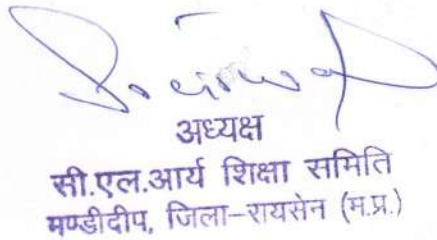 अध्यक्ष
सी.एल.आर्य शिक्षा समिति
मण्डीदीप, जिला-रायसेन (म.प्र.)